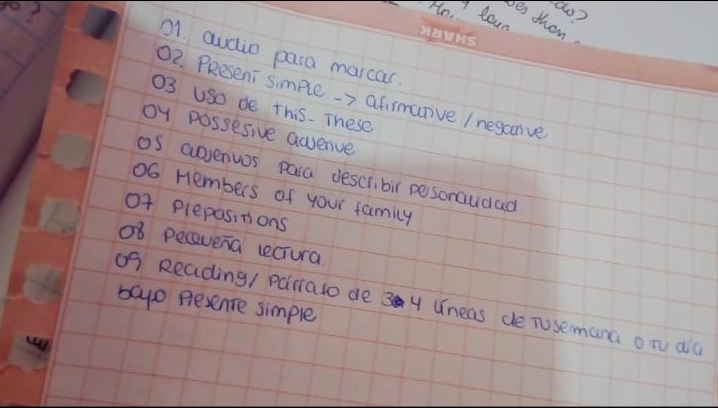 SHARK
01. audio para marcar.
02 Present simple -> afirmative / negative
03 uso de this - These
04 possesive adjetive
05 adjetivos para describir personalidad.
06 Members of your family
07 prepositions
08 pequeña lectura.
09 Reading / párrafo de 3 4 líneas de tu semana o tu día
bajo presente simple